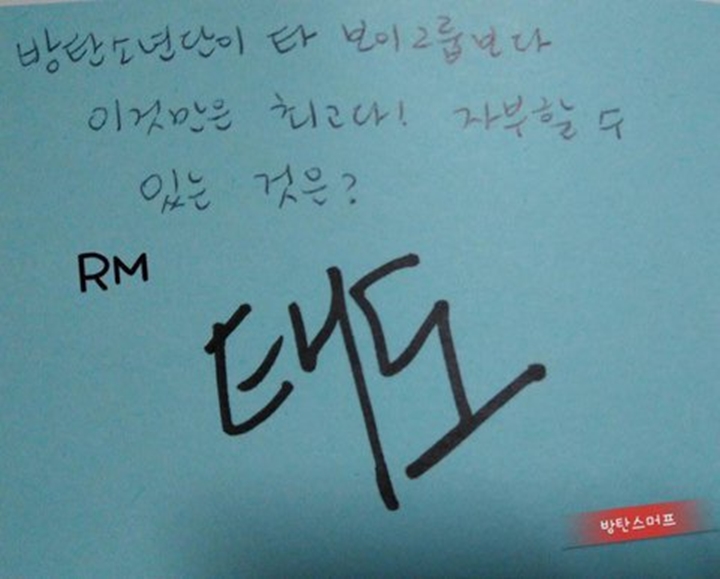 방탄소년단이 타 보이그룹보다
이것만은 최고다! 자부할 수
있는 것은?
RM
태도
방탄스머프